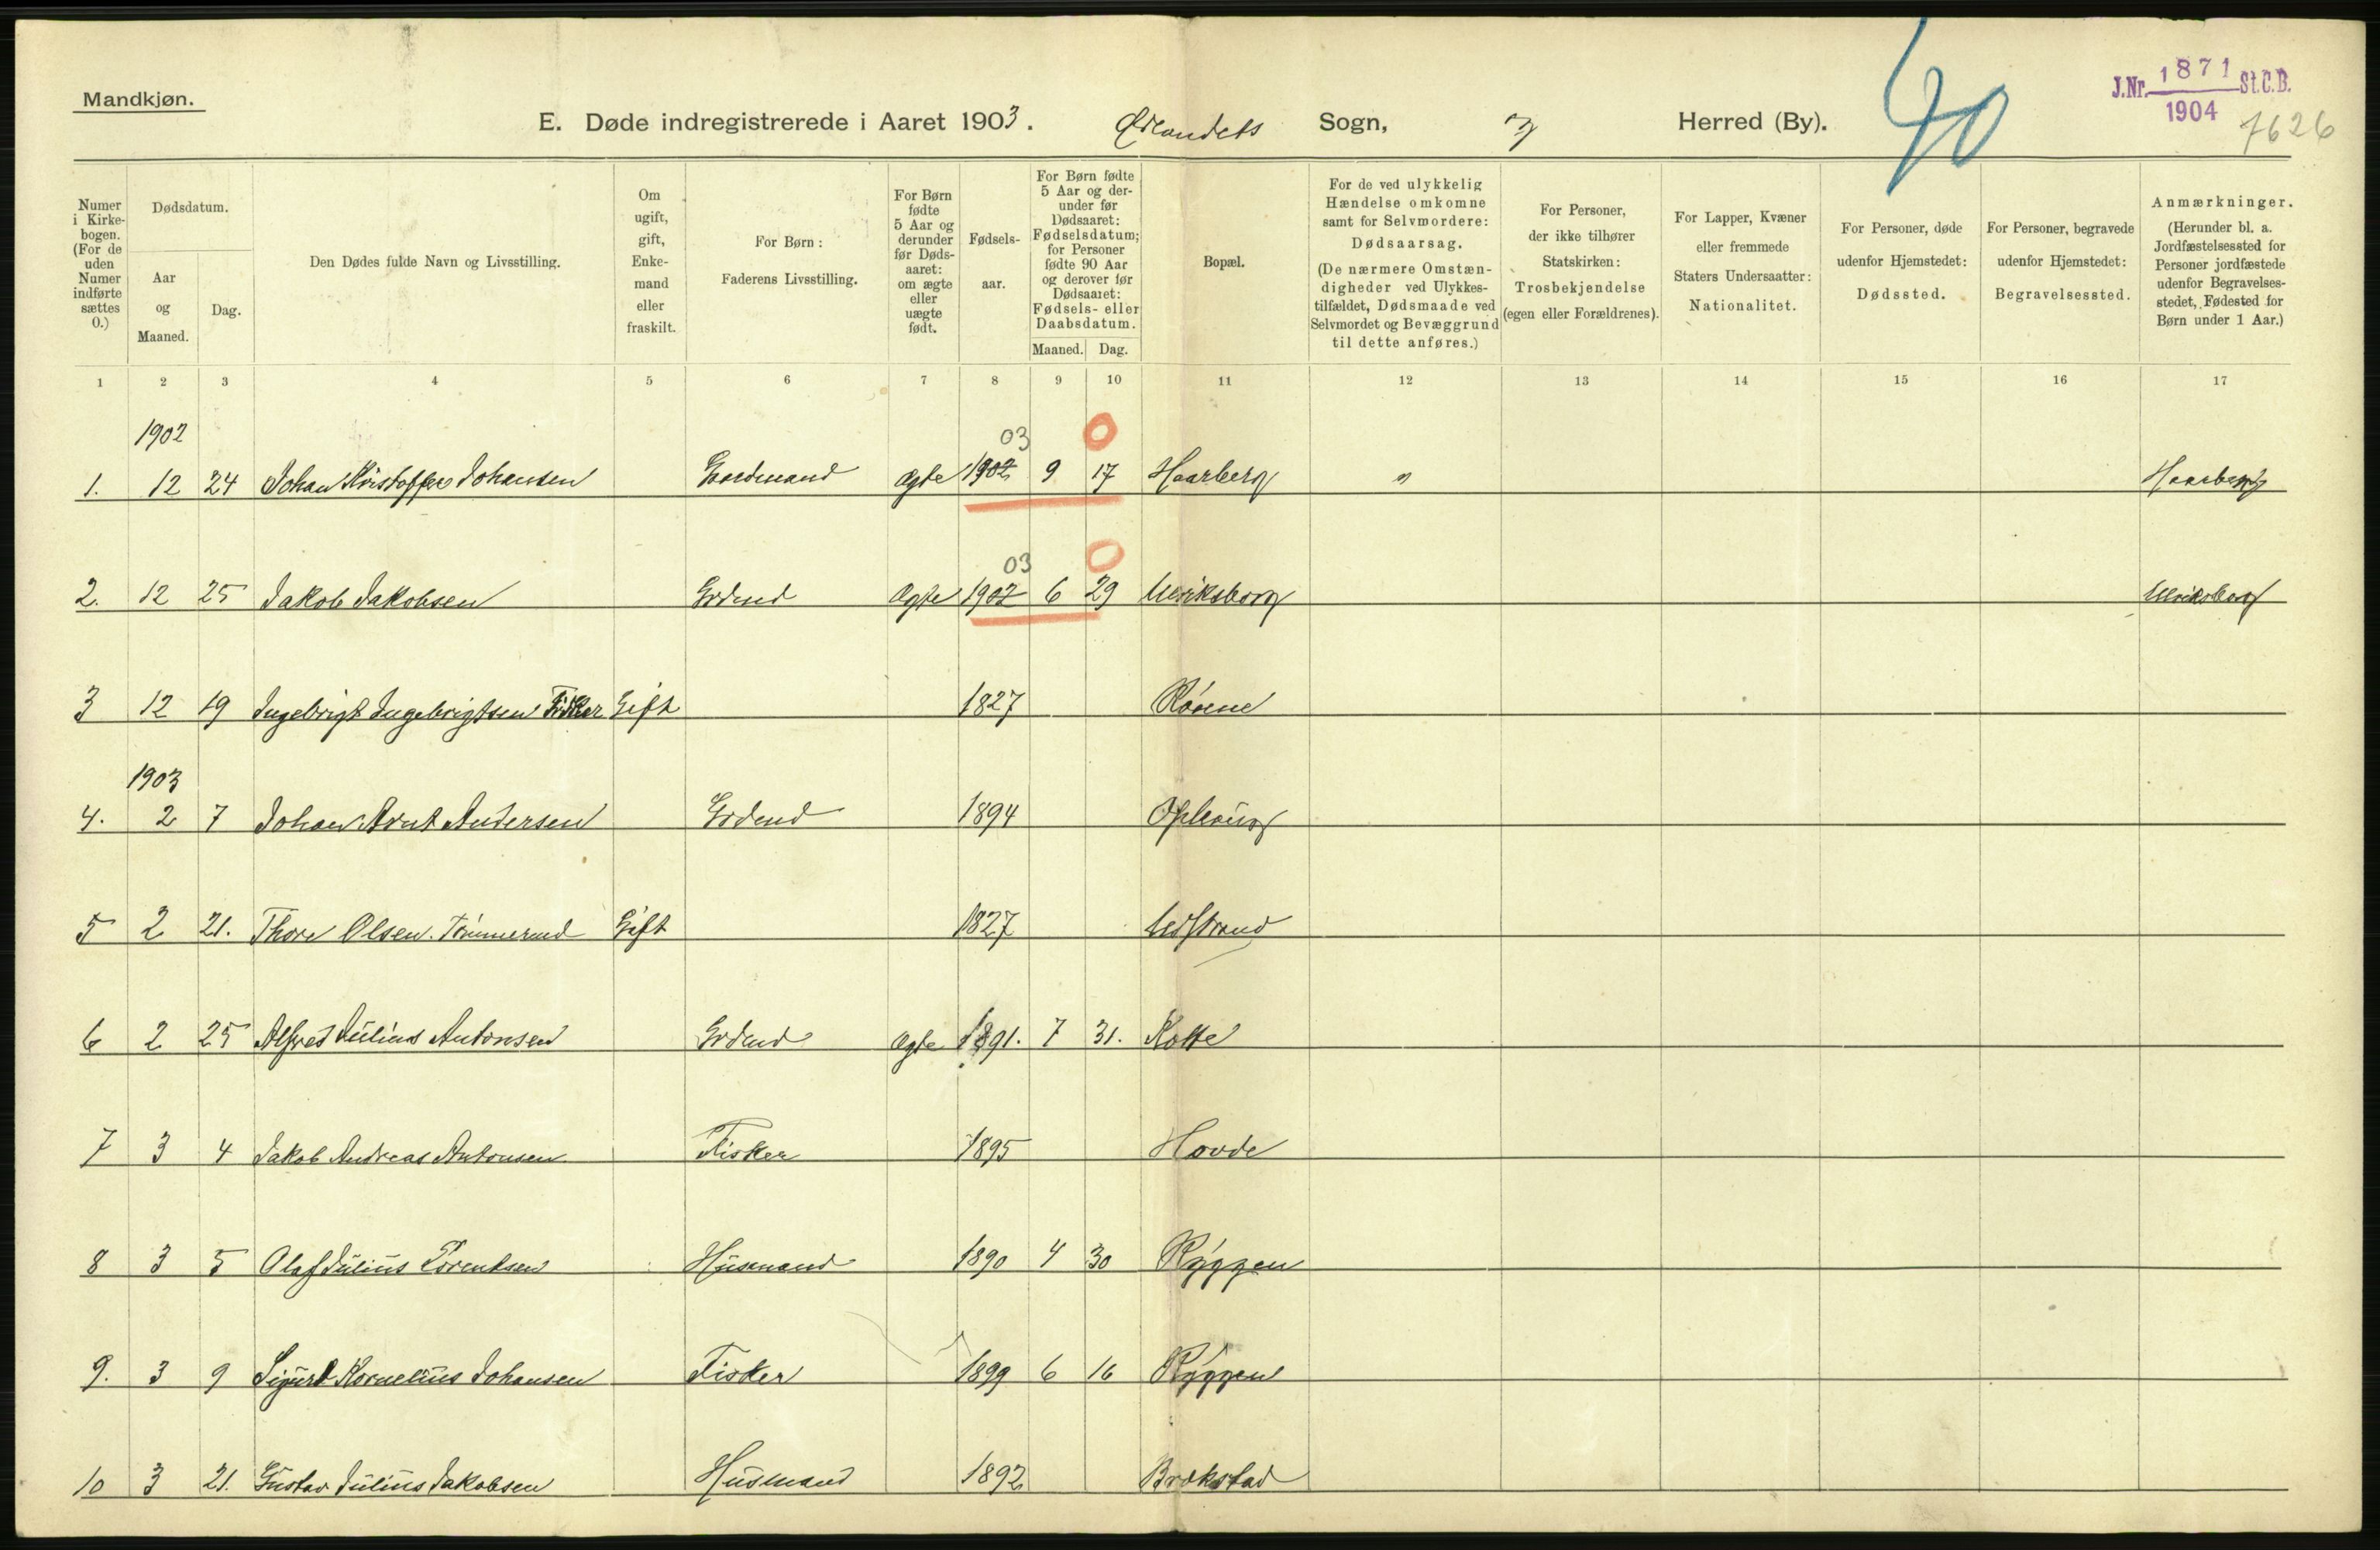 Mandkjøn.
E. Døde indregistrerede i Aaret 1903. Ørlandets Sogn, Herred (By).
40
J.Nr. 1871 St.C.B.
1904
7626
Numer i Kirkebogen. (For de uden Numer indførte sættes 0.)
Dødsdatum.
Aar og Maaned.
Dag.
Den Dødes fulde Navn og Livsstilling.
Om ugift, gift, Enkemand eller fraskilt.
For Børn: Faderens Livsstilling.
For Børn fødte 5 Aar og derunder før Dødsaaret: om ægte eller uægte født.
Fødselsaar.
For Børn fødte 5 Aar og derunder før Dødsaaret: Fødselsdatum; for Personer fødte 90 Aar og derover før Dødsaaret: Fødsels- eller Daabsdatum.
Maaned. Dag.
Bopæl.
For de ved ulykkelig Hændelse omkomne samt for Selvmordere: Dødsaarsag. (De nærmere Omstændigheder ved Ulykkestilfældet, Dødsmaade ved Selvmordet og Bevæggrund til dette anføres.)
For Personer, der ikke tilhører Statskirken: Trosbekjendelse (egen eller Forældrenes).
For Lapper, Kvæner eller fremmede Staters Undersaatter: Nationalitet.
For Personer, døde udenfor Hjemstedet: Dødssted.
For Personer, begravede udenfor Hjemstedet: Begravelsessted.
Anmærkninger. (Herunder bl. a. Jordfæstelsessted for Personer jordfæstede udenfor Begravelsesstedet, Fødested for Børn under 1 Aar.)
1 2 3 4 5 6 7 8 9 10 11 12 13 14 15 16 17
1902 03 0
1. 12 24 Johan Kristoffer Johansen Gaardmand Ægte 1902 9 17 Haarberg " Haarberg
03 0
2. 12 25 Jakob Jakobsen Grdmd Ægte 1902 6 29 Ulriksborg Ulriksborg
3 12 19 Ingebrigt Ingebrigtsen Fisker Gift 1827
1903
4. 2 7 Johan Arnt Andersen Grdmd 1894 Ophaug
5 2 21. Thore Olsen. Tømmermd Gift 1827 Udstrand
6 2 25 Alfred Julius Antonsen Grdmd Ægte 1891. 7 31. Kotte
7 3 4 Jakob Andreas Antonsen Fisker 1895 Hovde
8 3 5 Olaf Julius Lorentsen Husmand 1890 4 30 Ryggen
9. 3 9 Sigurd Kornelius Johansen Fisker 1899 6 16 Ryggen
10 3 21. Gustav Julius Jakobsen Husmand 1892 Brækstad